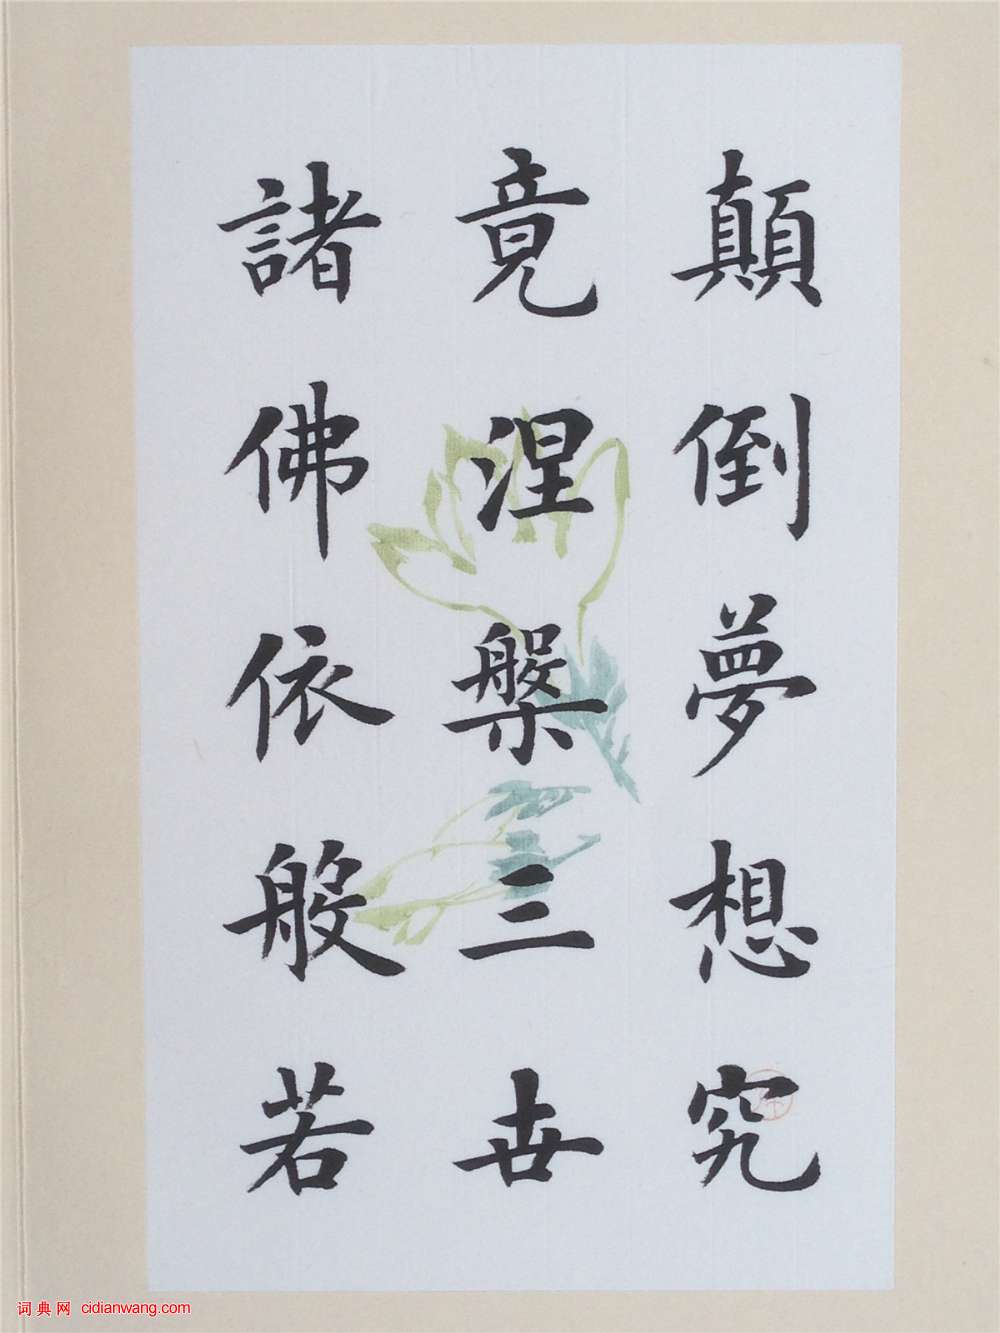 顛倒夢想究
竟涅槃三世
諸佛依般若
词典网 cidianwang.com